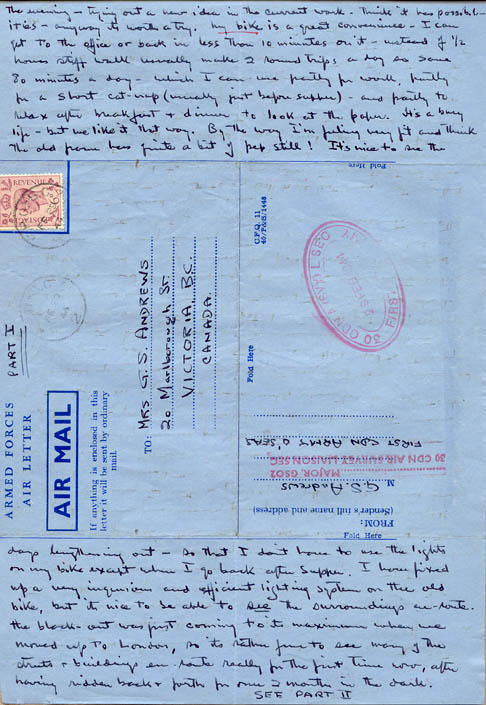 the evening - trying out a new idea in the current work. Think it has possibil-
ities - anyway its worth a try. my bike is a great convenience - I can
get to the office or back in less than 10 minutes on it - instead of ½
hours stiff walk usually make 2 round trips a day so save
80 minutes a day - which I can use partly for work, partly
for a short cat-nap (usually just before supper) - and partly to
relax after breakfast + dinner to look at the paper. It's a busy
life - but we like it that way. By the way I'm feeling very fit and think
the old frame has quite a bit of pep still! It's nice to see the
Fold Here
POSTAGE REVENUE
PART I
ARMED FORCES
AIR LETTER
AIR MAIL
If anything is enclosed in this
letter it will be sent by ordinary
mail.
TO:
MRS G.S. ANDREWS
20 Marlborough St.
VICTORIA B.C.
CANADA.
C.F.Q. 11
40/P.&S/1448
30 CDN AIR SVY L SEC
FIRST
FEB
Fold Here
FIRST CDN ARMY O'SEAS
30 CDN AIR SURVEY LIAISON SEC
MAJOR GSO2
G.S. Andrews
(Sender's full name and address)
FROM:
Fold Here
days lengthening out - so that I don't have to use the lights
on my bike except when I go back after supper. I have fixed
up a very ingenious and efficient lighting system on the old
bike, but its nice to be able to see the surroundings en-route.
The black-out was just coming to its maximum when we
moved up to London, so its rather fun to see many of the
streets + buildings en-route really for the first time now, after
having ridden back + forth for over 2 months in the dark.
SEE PART II